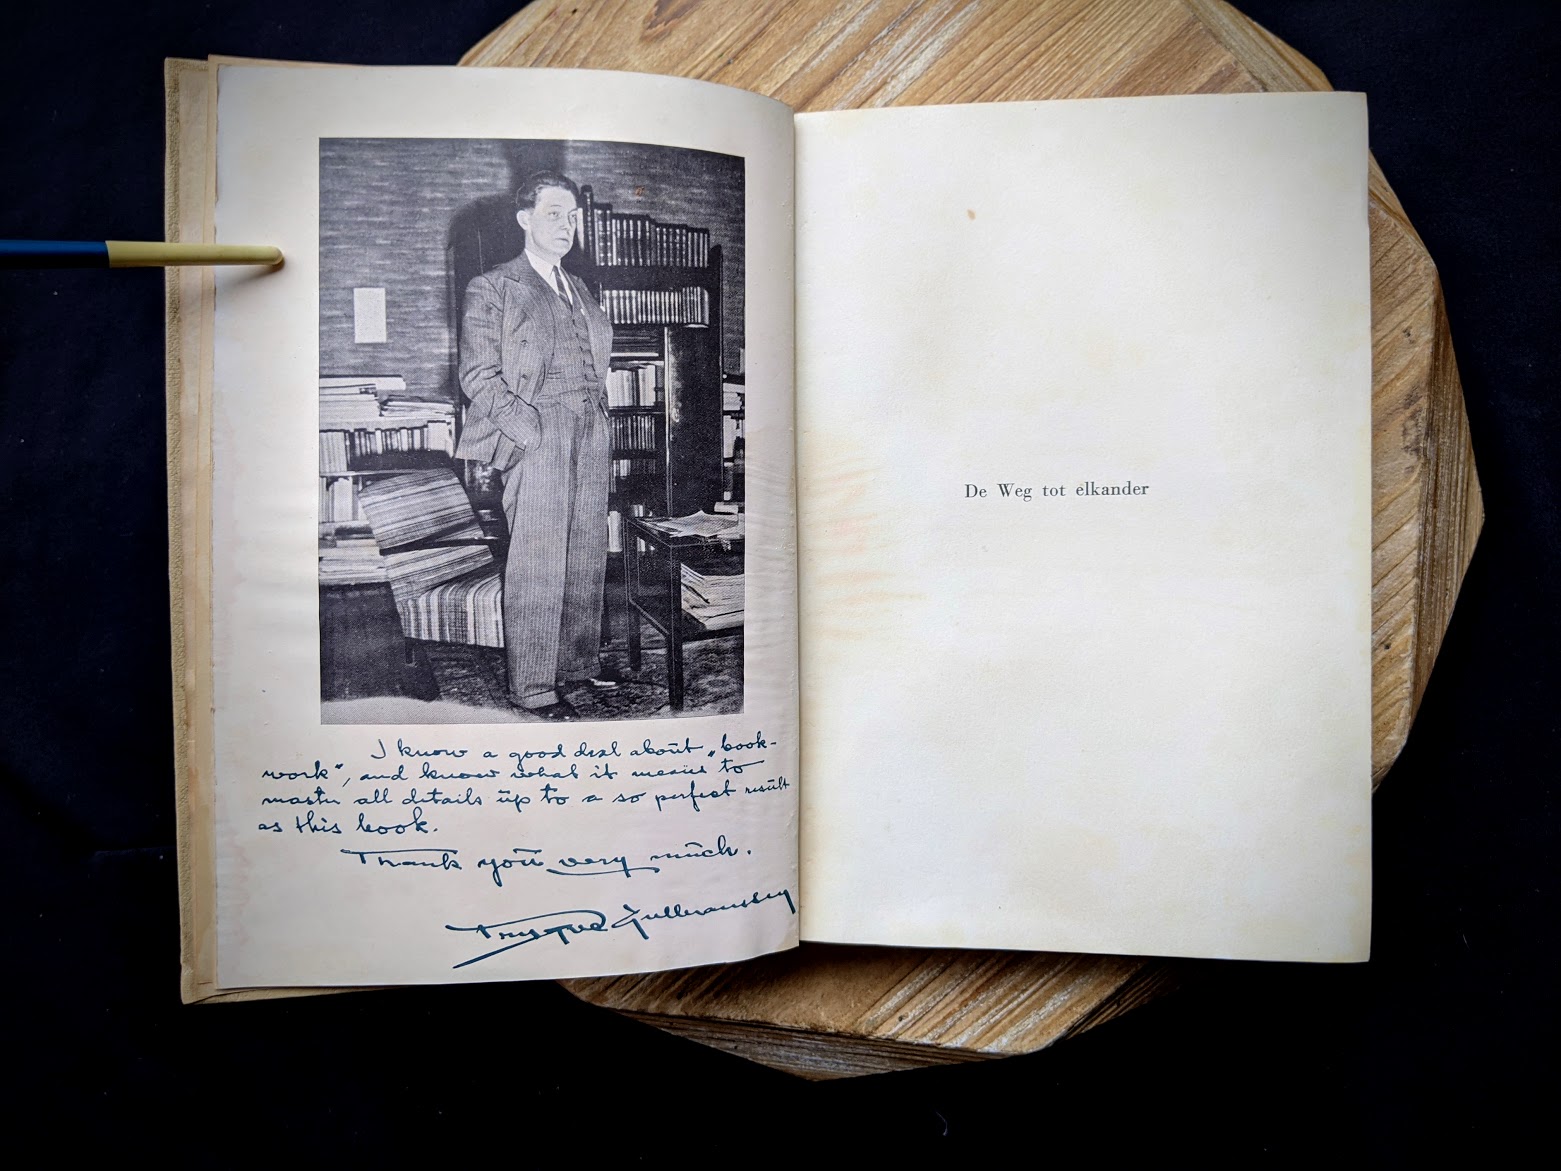 I know a good deal about „book-
work", and know what it means to
master all details up to a so perfect result
as this book.
Thank you very much.
Trygve Gulbranssen
De Weg tot elkander